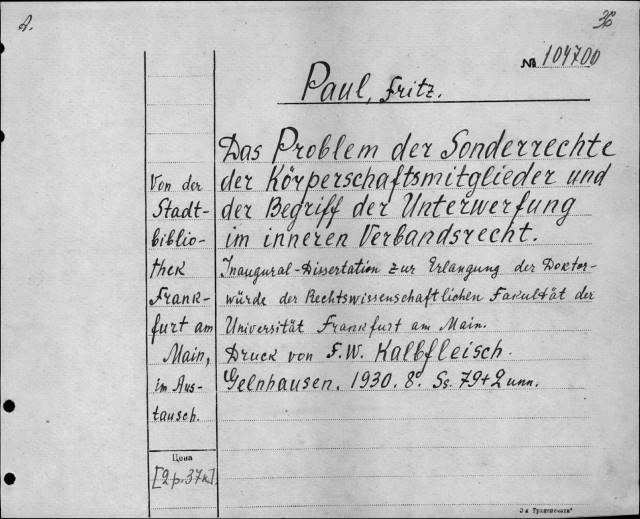 A.
№ 104700
Paul, Fritz.
Das Problem der Sonderrechte
der Körperschaftsmitglieder und
der Begriff der Unterwerfung
im inneren Verbandsrecht.
Inaugural-Dissertation zur Erlangung der Doktor-
würde der Rechtswissenschaftlichen Fakultät der
Universität Frankfurt am Main.
Druck von F.W. Kalbfleisch.
Gelnhausen. 1930. 8º. Ss. 79+2 unn.
Von der
Stadt-
biblio-
thek
Frank-
furt am
Main,
im Aus-
tausch.
Цена
[2 р. 37 к.]